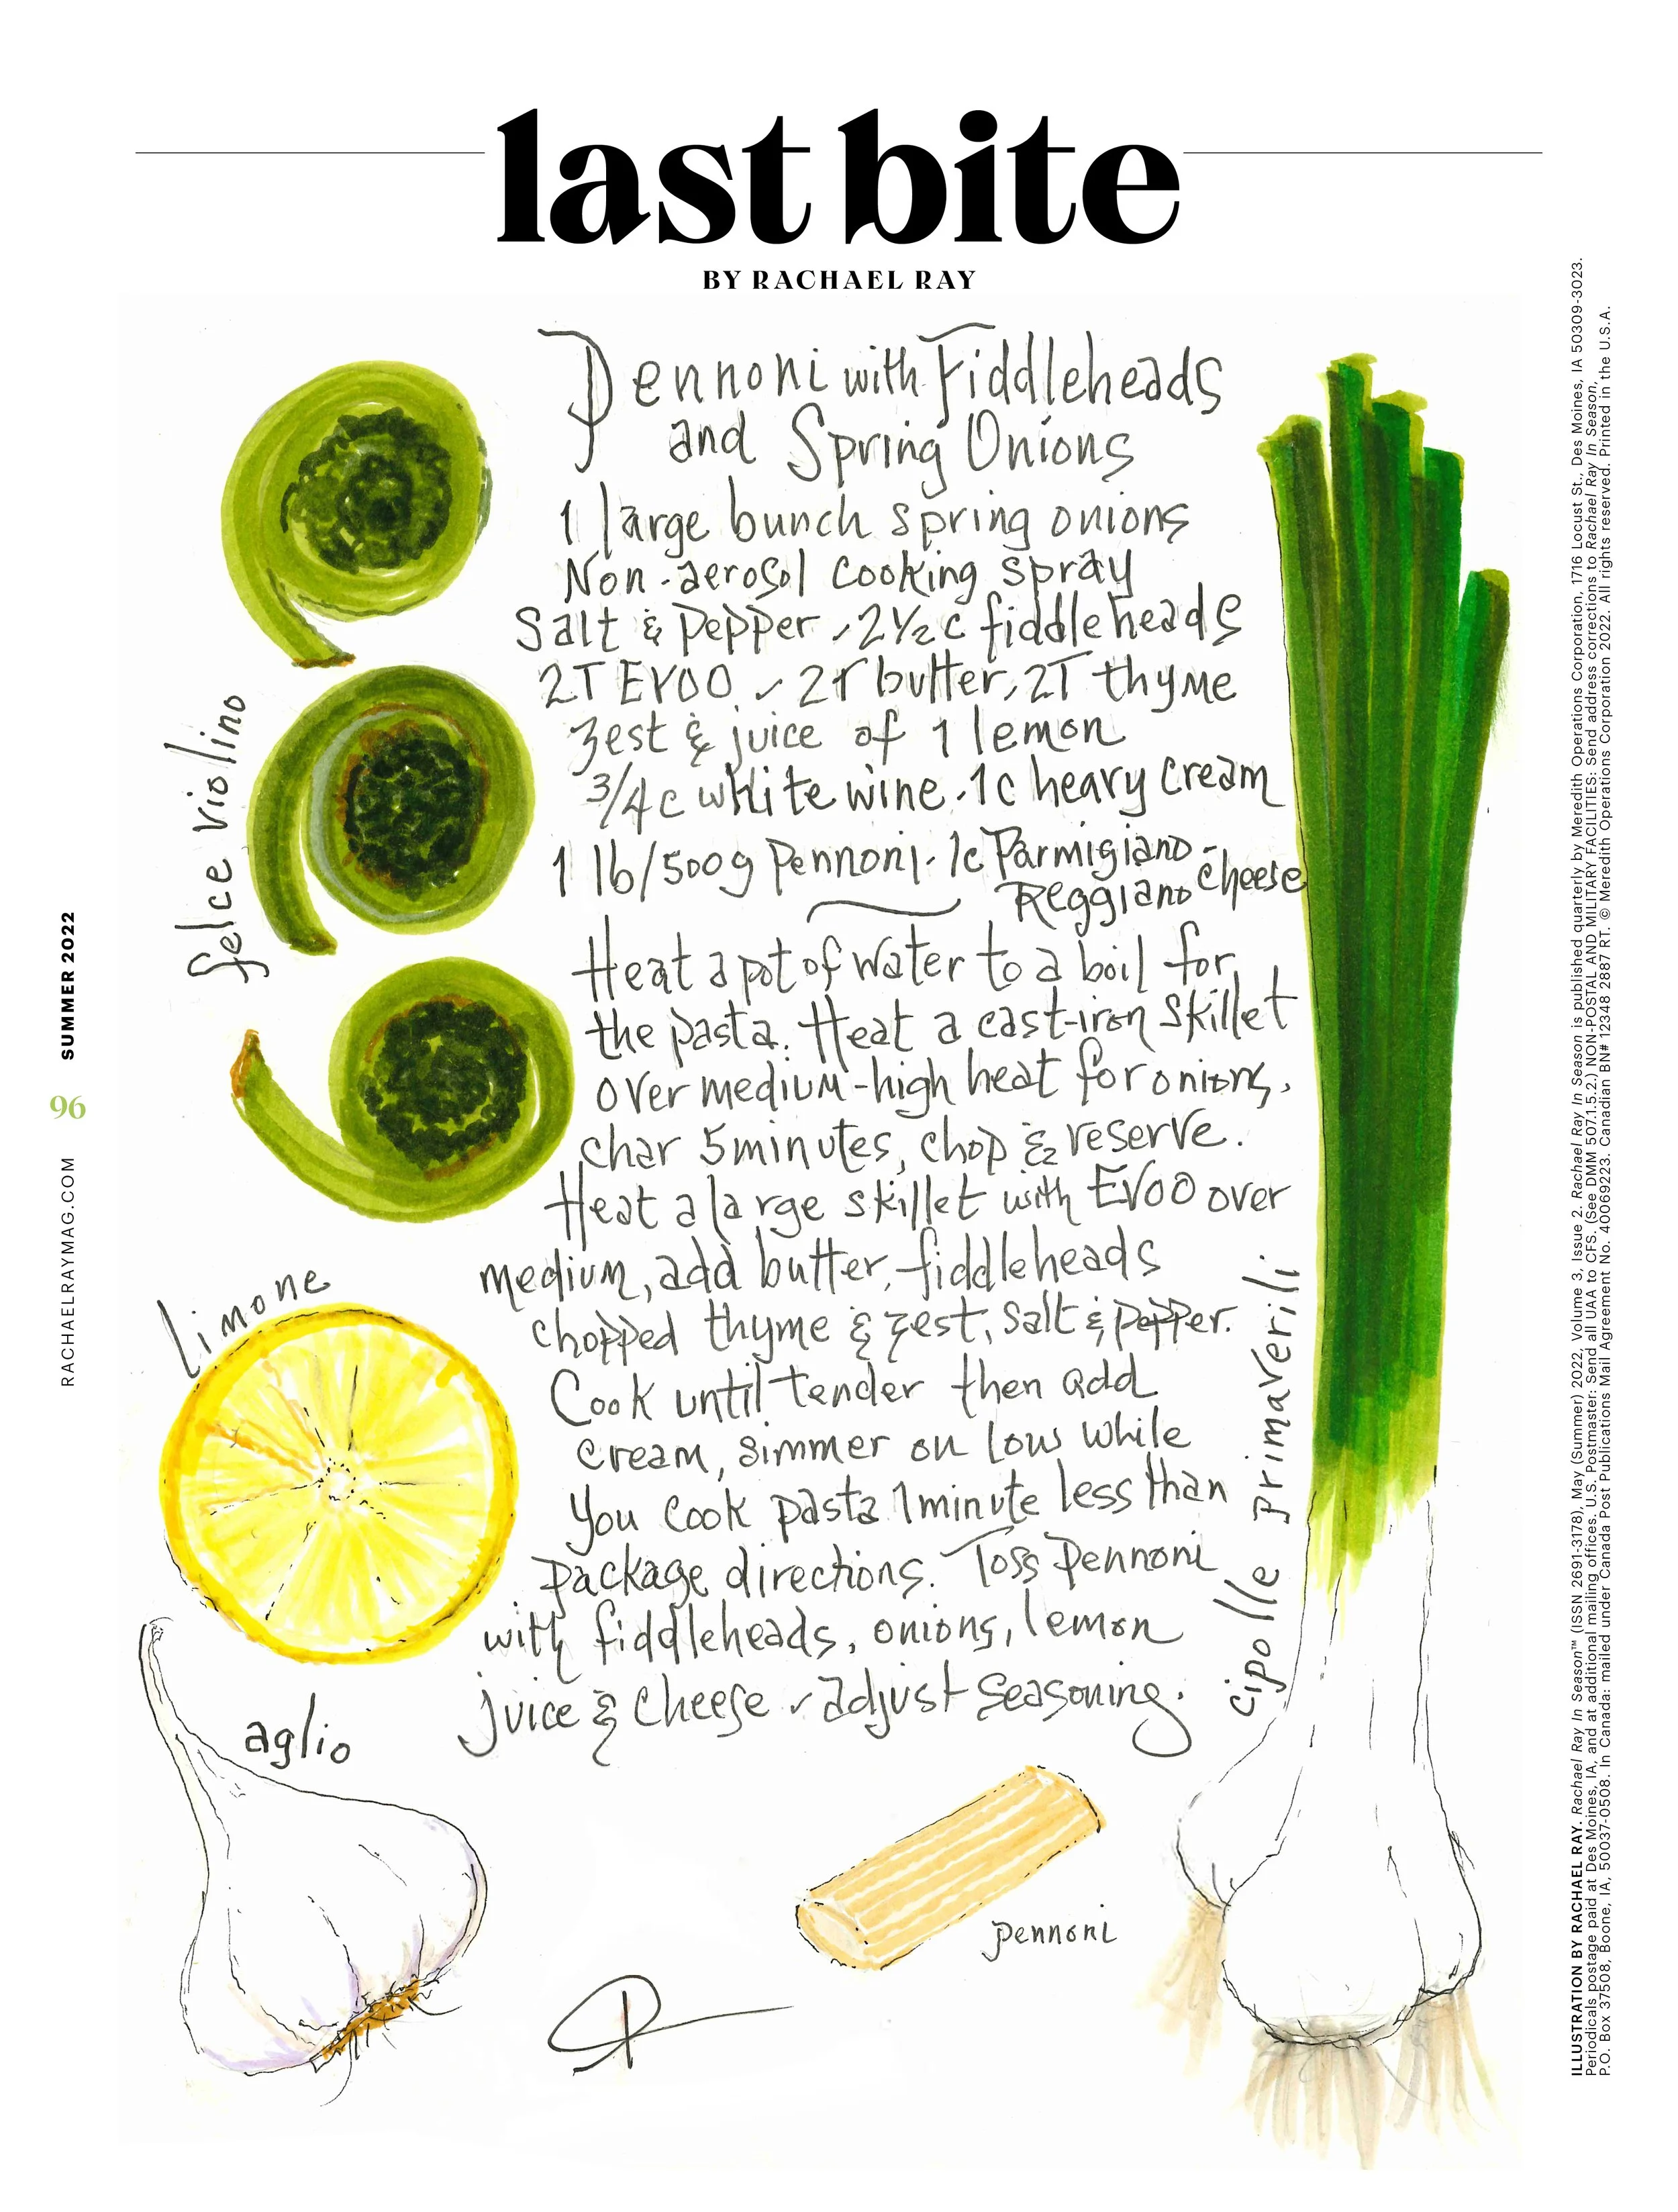 last bite
BY RACHAEL RAY
Pennoni with Fiddleheads
and Spring Onions
1 large bunch spring onions
Non-aerosol cooking spray
Salt & Pepper - 2½ c fiddleheads
2T EVOO - 2T butter, 2T thyme
zest & juice of 1 lemon
3/4 c white wine - 1c heavy cream
1 lb/500g Pennoni - 1c Parmigiano-
Reggiano cheese
Heat a pot of water to a boil for
the pasta. Heat a cast-iron skillet
over medium-high heat for onions,
char 5 minutes, chop & reserve.
Heat a large skillet with EVOO over
medium, add butter, fiddleheads
chopped thyme & zest, salt & pepper.
Cook until tender then add
cream, simmer on low while
you cook pasta 1 minute less than
package directions. Toss Pennoni
with fiddleheads, onions, lemon
juice & cheese - adjust seasoning.
felce violino
limone
aglio
pennoni
cipolle primaverili
RACHAELRAYMAG.COM 96 SUMMER 2022
ILLUSTRATION BY RACHAEL RAY. Rachael Ray In Season™ (ISSN 2691-3178), May (Summer) 2022, Volume 3, Issue 2. Rachael Ray In Season is published quarterly by Meredith Operations Corporation, 1716 Locust St., Des Moines, IA 50309-3023.
Periodicals postage paid at Des Moines, IA, and at additional mailing offices. U.S. Postmaster: Send all UAA to CFS. (See DMM 507.1.5.2.) NON-POSTAL AND MILITARY FACILITIES: Send address corrections to Rachael Ray In Season,
P.O. Box 37508, Boone, IA, 50037-0508. In Canada: mailed under Canada Post Publications Mail Agreement No. 40069223. Canadian BN# 12348 2887 RT. © Meredith Operations Corporation 2022. All rights reserved. Printed in the U.S.A.